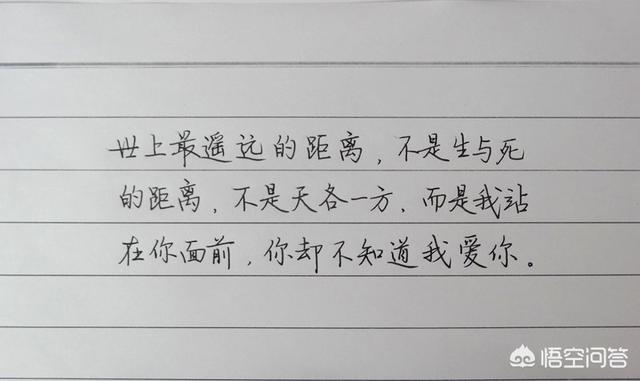 世上最遥远的距离，不是生与死
的距离，不是天各一方，而是我站
在你面前，你却不知道我爱你。
悟空问答